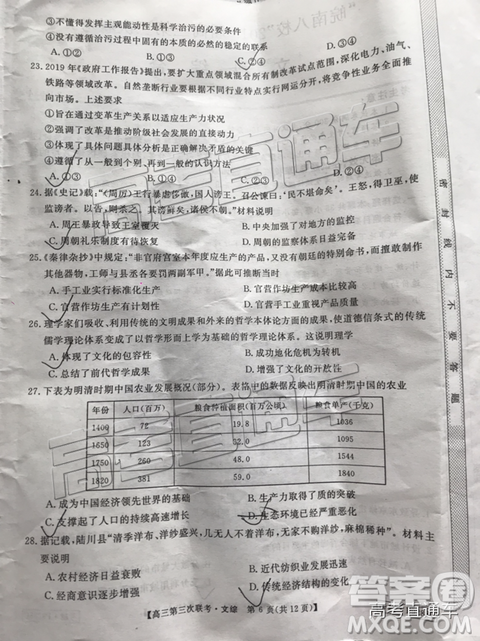 ③不懂得发挥主观能动性是科学治污的必要条件
④没有遵循治污过程中固有的本质的必然的稳定的联系
A.①② B.①③ C.②④ D.③④
23.2019年《政府工作报告》提出,要扩大重点领域混合所有制改革试点范围,深化电力、油气、
铁路等领域改革。自然垄断行业要根据不同行业特点实行网运分开,将竞争性业务全面推
向市场。上述要求
①旨在通过变革生产关系以适应生产力状况
②强调了改革是推动阶级社会发展的直接动力
③体现了具体问题具体分析是马克思主义活的灵魂
④遵循了从一般到个别,再到一般的认识秩序
A.①② B.①③ C.②④ D.③④
24.据《史记》载:“(周厉)王行暴虐侈傲,国人谤王。召公谏曰:‘民不堪命矣’。王怒,得卫巫,使
监谤者。以告,则杀之。其谤鲜矣,诸侯不朝。”材料说明
A.周王暴政导致王室覆灭 B.中央加强了对地方的监控
C.周朝礼乐制度有待恢复 D.统治方式影响政权稳定
25.《秦律杂抄》中规定:“非官府宫室本年度应生产的产品,又没有朝廷的特别命书,而擅敢制作
其他器物,工师与县丞各要罚两副军甲。”据此可推断当时
A.手工业实行标准化生产 B.官营作坊生产成本比较高
C.官营作坊生产有计划性 D.官营手工业重视产品质量
26.理学家们吸收、利用传统的文明成果和外来的哲学本体论方面的成果,使道德信条式的传统
儒学理论体系变成了以哲学形而上学为基础的哲学理论体系。这说明理学
A.体现了文化的包容性 B.具有思辨性的特征
C.总结了前代哲学成果 D.增强了儒学的生命力
27.下表为明清时期中国农业发展概况(部分)。表中的数据反映出明清时期中国的农业
年份 人口(百万) 粮食种植面积(百万公顷) 粮食单产(千克)
1400 72 19.8 1036
1650 123 32.0 1051
1750 260 48.0 1544
1820 381 59.0 1840
A.成为中国经济领先世界的基础 B.生产力取得了质的突破
C.支撑起了人口的持续高速增长 D.生态环境已经严重恶化
28.据记载,陆川县“清季洋布,洋纱盛兴,几无人不着洋布,无家不购洋纱,麻棉稀种”。材料主
要说明
A.农村经济日益衰败 B.近代纺织业发展迅速
C.农业生产结构变动 D.社会习俗发生巨变
【高三第三次联考·文综 第6页(共12页)】
密封线内不要答题
高考直通车
高考直通车
答案圈
高考直通车